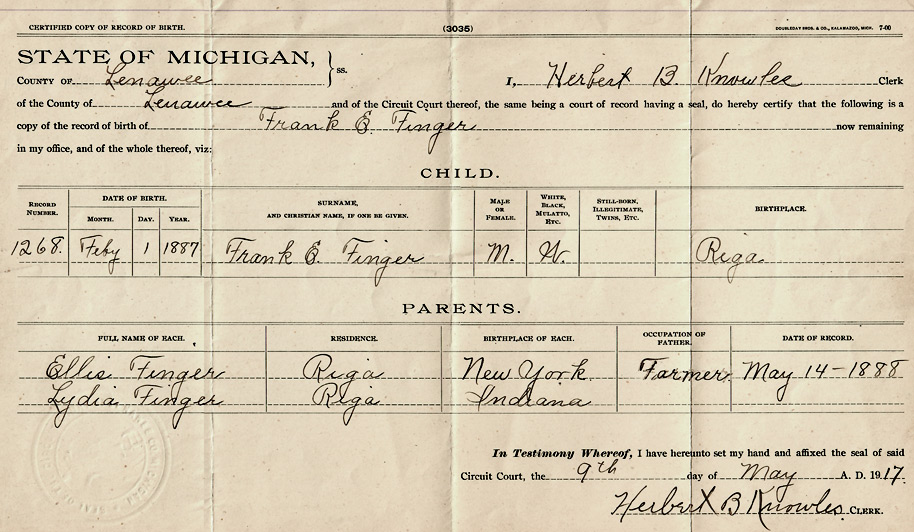 CERTIFIED COPY OF RECORD OF BIRTH. (3035) DOUBLEDAY BROS. & CO., KALAMAZOO, MICH. 7-00
STATE OF MICHIGAN,
COUNTY OF Lenawee } ss. I, Herbert B. Knowles Clerk
of the County of Lenawee and of the Circuit Court thereof, the same being a court of record having a seal, do hereby certify that the following is a
copy of the record of birth of Frank E. Finger now remaining
in my office, and of the whole thereof, viz:
CHILD.
RECORD NUMBER. DATE OF BIRTH. MONTH. DAY. YEAR. SURNAME, AND CHRISTIAN NAME, IF ONE BE GIVEN. MALE OR FEMALE. WHITE, BLACK, MULATTO, ETC. STILL-BORN, ILLEGITIMATE, TWINS, ETC. BIRTHPLACE.
1268. Feby 1 1887 Frank E. Finger M. W. Riga
PARENTS.
FULL NAME OF EACH. RESIDENCE. BIRTHPLACE OF EACH. OCCUPATION OF FATHER. DATE OF RECORD.
Ellis Finger Riga New York Farmer May 14-1888
Lydia Finger Riga Indiana
In Testimony Whereof, I have hereunto set my hand and affixed the seal of said
Circuit Court, the 9th day of May A. D. 1917.
Herbert B Knowles CLERK.